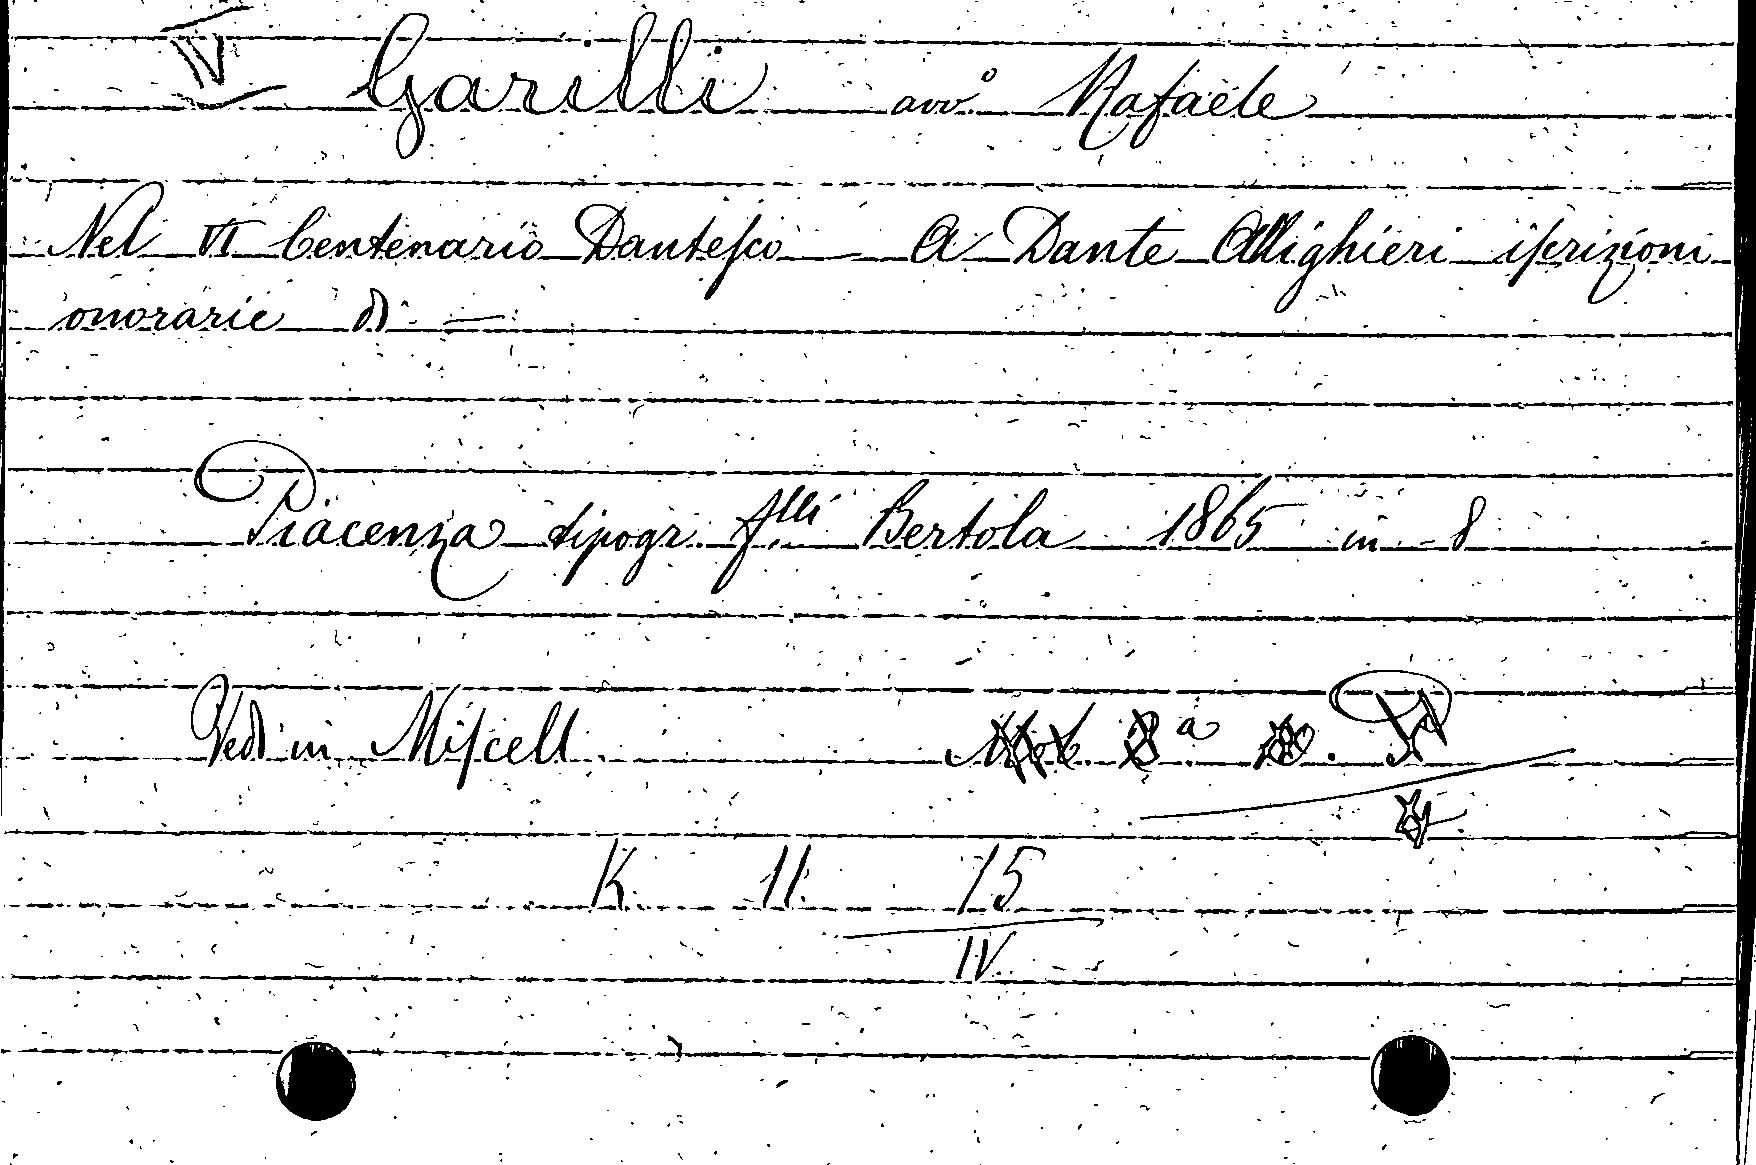 IV Garilli avvº Rafaele
Nel VI Centenario Dantesco – A Dante Allighieri iscrizioni
onorarie di –
Piacenza tipogr. f.lli Bertola 1865 in 8
Vedi in Miscell.
K. 11. 15
IV